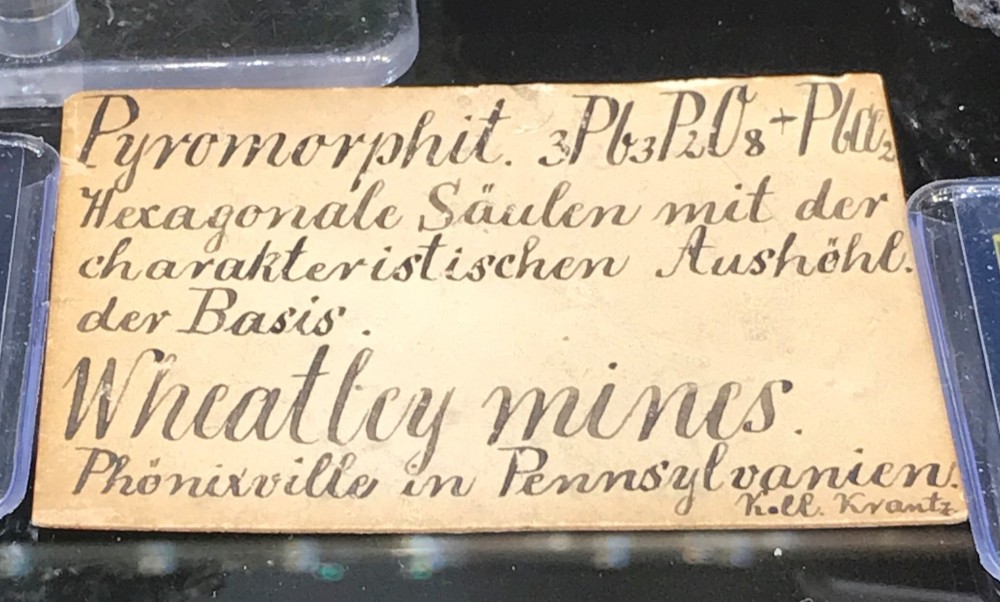 Pyromorphit. 3Pb3P2O8+PbCl2
Hexagonale Säulen mit der
charakteristischen Aushöhl.
der Basis.
Wheatley mines.
Phönixville in Pennsylvanien.
Koll. Krantz.